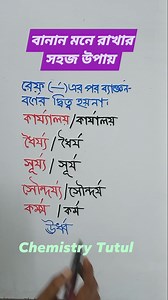 বানান মনে রাখার
সহজ উপায়
রেফ (—) এর পর ব্যাঞ্জন-
বর্ণের দ্বিত্ব হয়না।
কার্য্যালয়/কার্যালয়
ধৈর্য্য / ধৈর্য
সূর্য্য / সূর্য
সৌন্দর্য্য/সৌন্দর্য
কর্ম্ম / কর্ম
ঊর্ধ্ব
Chemistry Tutul